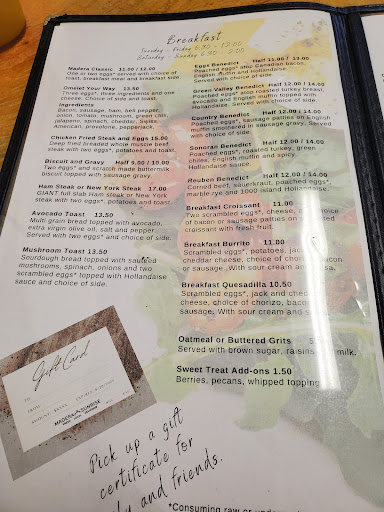 Breakfast
Tuesday - Friday 6:30 - 12:00
Saturday - Sunday 6:30 - 2:00
Madera Classic 11.00 / 12.00
One or two eggs* served with choice of
toast, breakfast meat and breakfast side.
Omelet Your Way 12.50
Three eggs*, three ingredients and one
cheese. Choice of side and toast.
Ingredients
Bacon, sausage, ham, bell pepper,
onion, tomato, mushroom, green chili,
jalapeno, spinach, cheddar, Swiss,
American, provolone, pepperjack.
Chicken Fried Steak and Eggs 16.00
Deep fried breaded whole muscle beef
steak with two eggs*, potatoes and toast.
Biscuit and Gravy Half 9.00 / 10.00
Two eggs* and scratch made buttermilk
biscuit topped with sausage gravy.
Ham Steak or New York Steak 17.00
GIANT full slab Ham Steak or New York
steak with two eggs*, potatoes and toast.
Avocado Toast 13.50
Multi grain bread topped with avocado,
extra virgin olive oil, salt and pepper.
Served with two eggs* and choice of side.
Mushroom Toast 13.50
Sourdough bread topped with sautéed
mushrooms, spinach, onions and two
scrambled eggs* topped with Hollandaise
sauce and choice of side.
Eggs Benedict Half 11.00 / 13.00
Poached eggs* atop Canadian bacon,
English muffin and Hollandaise.
Served with choice of side.
Green Valley Benedict Half 12.00 / 14.00
Poached eggs* atop roasted turkey breast,
avocado and English muffin topped with
Hollandaise. Served with choice of side.
Country Benedict Half 12.00 / 14.00
Poached eggs*, sausage patties on English
muffin smothered in sausage gravy. Served
with choice of side.
Sonoran Benedict Half 12.00 / 14.00
Poached eggs*, roasted turkey, green
chiles, English muffin and spicy
Hollandaise sauce.
Reuben Benedict Half 12.00 / 14.00
Corned beef, sauerkraut, poached eggs*,
marble rye and 1000 island Hollandaise.
Breakfast Croissant 11.00
Two scrambled eggs*, cheese, choice
of bacon or sausage patties on
croissant with fresh fruit.
Breakfast Burrito 11.00
Scrambled eggs*, potatoes, jack
cheddar cheese, choice of chorizo, bacon
or sausage. With sour cream and salsa.
Breakfast Quesadilla 10.50
Scrambled eggs*, jack and cheddar
cheese, choice of chorizo, bacon or
sausage. With sour cream and
Oatmeal or Buttered Grits 5
Served with brown sugar, raisins milk.
Sweet Treat Add-ons 1.50
Berries, pecans, whipped topping
Gift Card
TO
FROM
AMOUNT
Pick up a gift
certificate for
and friends.
*Consuming raw or